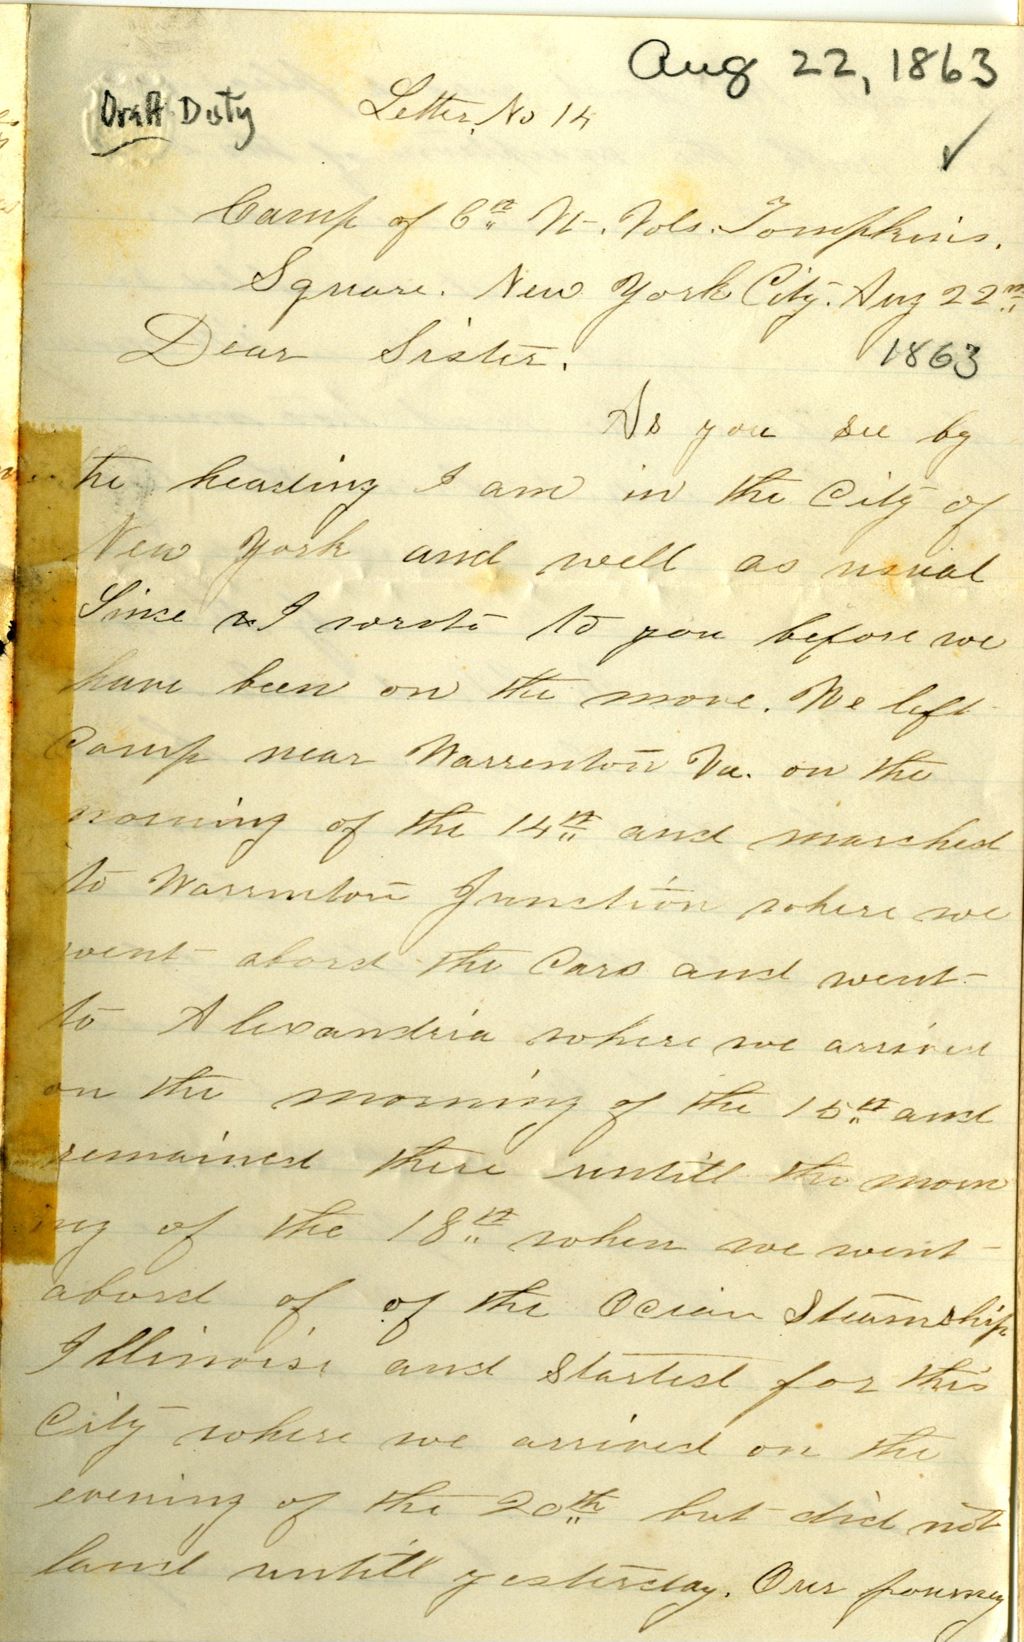 Aug 22, 1863
Draft Duty
Letter No 14
Camp of 6th Vt. Vols. Tompkins.
Square. New York City. Aug 22nd
1863
Dear Sister.
As you see by
the heading I am in the City of
New York and well as usual
Since I wrote to you before we
have been on the move. We left
Camp near Warrenton Va. on the
morning of the 14th and marched
to Warrenton Junction where we
went abord the Cars and went
to Alexandria where we arrived
on the morning of the 15th and
remained there untill the morn
ing of the 18th when we went
abord of of the Ocean Steamship
Illinoise and started for this
City where we arrived on the
evening of the 20th but did not
land untill yesterday. Our journey